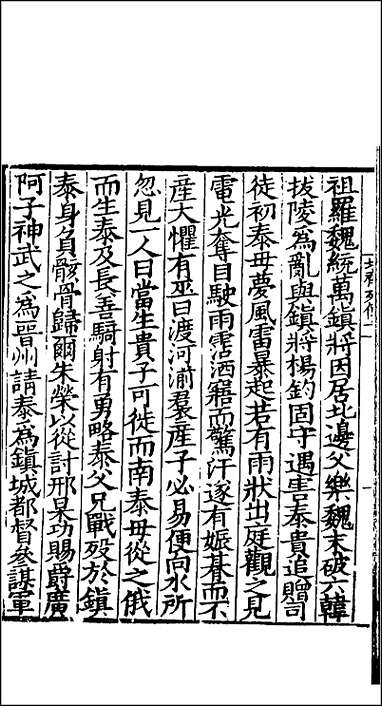 祖羅魏統萬鎮將因居北邊父樂魏末破六韓
拔陵為亂與鎮將楊鈞固守遇害泰貴追贈司
徒初泰母夢風雷暴起若有雨狀出庭觀之見
電光奪目駛雨霑洒寤而驚汗遂有娠朞而不
産大懼有巫曰渡河湔裙産子必易便向水所
忽見一人曰當生貴子可徙而南泰母從之俄
而生泰及長善騎射有勇略泰父兄戰殁於鎮
泰身負骸骨歸爾朱榮以從討邢杲功賜爵廣
阿子神武之為晉州請泰為鎮城都督參謀軍